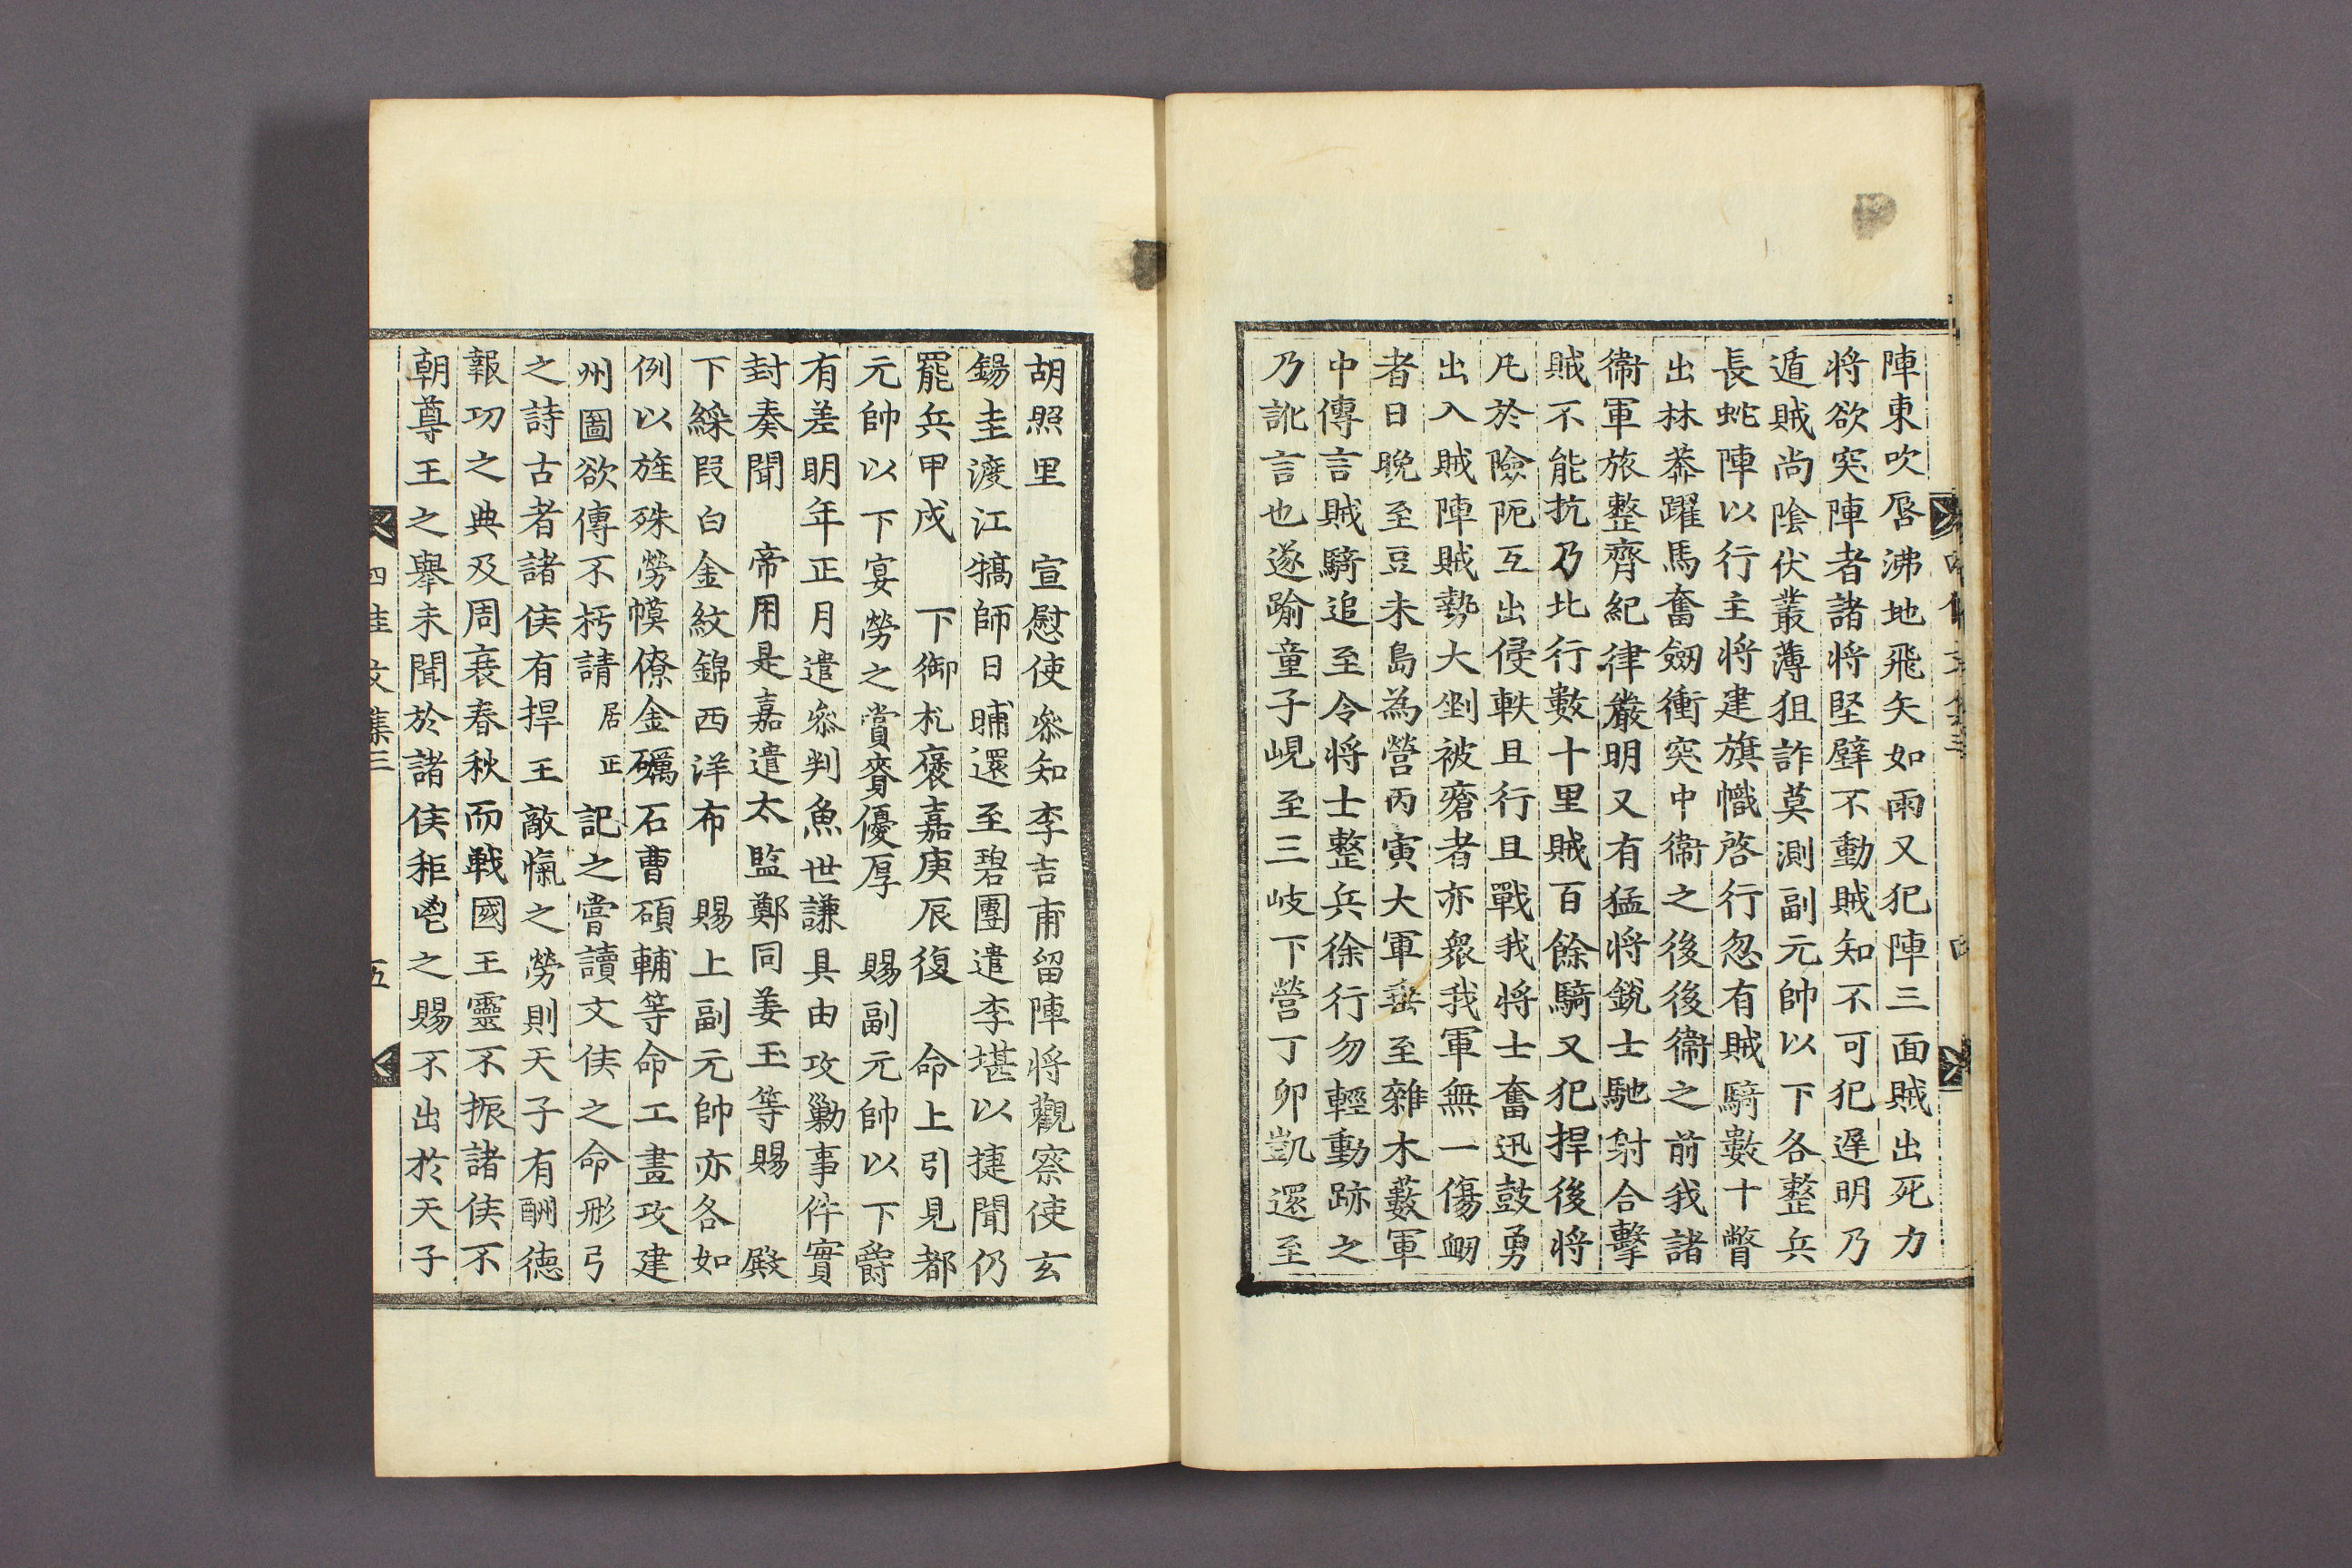 陣東吹唇沸地飛矢如雨又犯陣三面賊出死力
将欲突陣者諸将堅壁不動賊知不可犯遲明乃
遁賊尚陰伏叢薄狙詐莫測副元帥以下各整兵
長蛇陣以行主将建旗幟啓行忽有賊騎數十瞥
出林莽躍馬奮劒衝突中衛之後後衛之前我諸
衛軍旅整齊紀律嚴明又有猛将銳士馳射合擊
賊不能抗乃北行數十里賊百餘騎又犯捍後将
凡於險阨互出侵軼且行且戰我将士奮迅鼓勇
出入賊陣賊勢大剉被瘡者亦衆我軍無一傷衂
者日晚至豆未島為營丙寅大軍垂至雜木藪軍
中傳言賊騎追至令将士整兵徐行勿輕動跡之
乃訛言也遂踰童子峴至三岐下營丁卯凱還至
胡照里 宣慰使叅知李吉甫留陣将觀察使玄
錫圭渡江犒師日晡還至碧團遣李堪以捷聞仍
罷兵甲戍 下御札褒嘉庚辰復 命上引見都
元帥以下宴勞之賞賚優厚 賜副元帥以下爵
有差明年正月遣叅判魚世謙具由攻勦事件實
封奏聞 帝用是嘉遣太監鄭同姜玉等賜 殿
下綵段白金紋錦西洋布 賜上副元帥亦各如
例以旌殊勞幙僚金礪石曹碩輔等命工畫攻建
州圖欲傳不朽請 居正 記之嘗讀文侯之命彤弓
之詩古者諸侯有捍王敵愾之勞則天子有酬德
報功之典及周衰春秋而戰國王靈不振諸侯不
朝尊王之舉未聞於諸侯秬鬯之賜不出於天子
四佳文集三 五